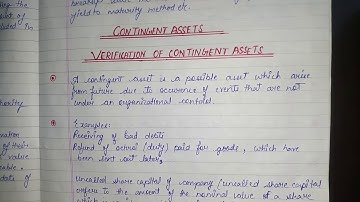 yield to maturity method etc.
CONTINGENT ASSETS
VERIFICATION OF CONTINGENT ASSETS
A contingent asset is a possible asset which arise
from future due to occurence of events that are not
under an organisational control.
Examples:
Receiving of bad debts
Refund of octroi (duty) paid for goods, which have
been sent out later.
Uncalled share capital of company (uncalled share capital
refers to the amount of the nominal value of a share